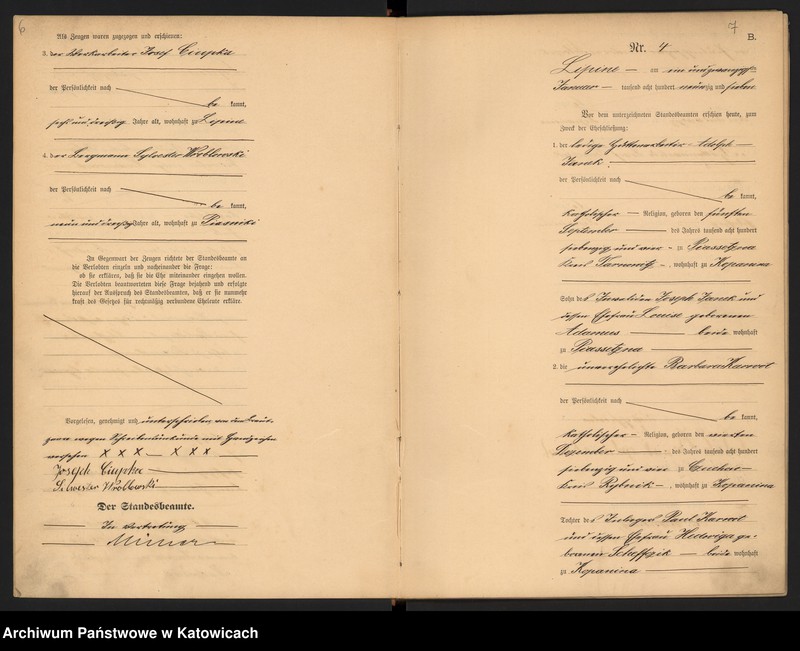 6
Als Zeugen waren zugezogen und erschienen:
3. der Werkarbeiter Josef Ciupka
der Persönlichkeit nach
be kannt,
sechs und dreißig Jahre alt, wohnhaft zu Lipine
4. der Bergmann Sylvester Wroblowski
der Persönlichkeit nach
be kannt,
neun und dreißig Jahre alt, wohnhaft zu Piasniki
In Gegenwart der Zeugen richtete der Standesbeamte an
die Verlobten einzeln und nacheinander die Frage:
ob sie erklären, daß sie die Ehe miteinander eingehen wollen.
Die Verlobten beantworteten diese Frage bejahend und erfolgte
hierauf der Ausspruch des Standesbeamten, daß er sie nunmehr
kraft des Gesetzes für rechtmäßig verbundene Eheleute erkläre.
Vorgelesen, genehmigt und unterschrieben von den Zeu-
gen wegen Schreibensunkunde mit Handzeichen
versehen X X X — X X X
Joseph Ciupka
Silwester Wroblowski
Der Standesbeamte.
In Vertretung
7
B.
Nr. 4
Lipine — am ein und zwanzigsten
Januar — tausend acht hundert neunzig und sieben
Vor dem unterzeichneten Standesbeamten erschien heute, zum
Zweck der Eheschließung:
1. der ledige Hüttenarbeiter Adolph —
Janek
der Persönlichkeit nach
be kannt,
katholischer — Religion, geboren den fünften
September — des Jahres tausend acht hundert
siebenzig und vier — zu Piassetzna
Kreis Tarnowitz —, wohnhaft zu Kopanina
Sohn des Invaliden Joseph Janek und
dessen Ehefrau Louise geborenen
Adamus — beide wohnhaft
zu Piassetzna
2. die unverehelichte Barbara Karwot
der Persönlichkeit nach
be kannt,
katholischer — Religion, geboren den vierten
Dezember — des Jahres tausend acht hundert
siebenzig und vier zu
Kreis Rybnik —, wohnhaft zu Kopanina
Tochter des Inlieger Paul Karwot
und dessen Ehefrau Hedwiga ge-
borenen — beide wohnhaft
zu Kopanina
Archiwum Państwowe w Katowicach